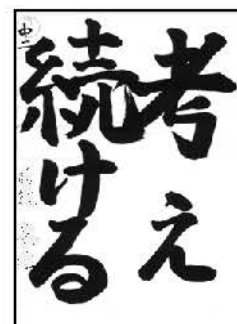 考え
続ける
中二